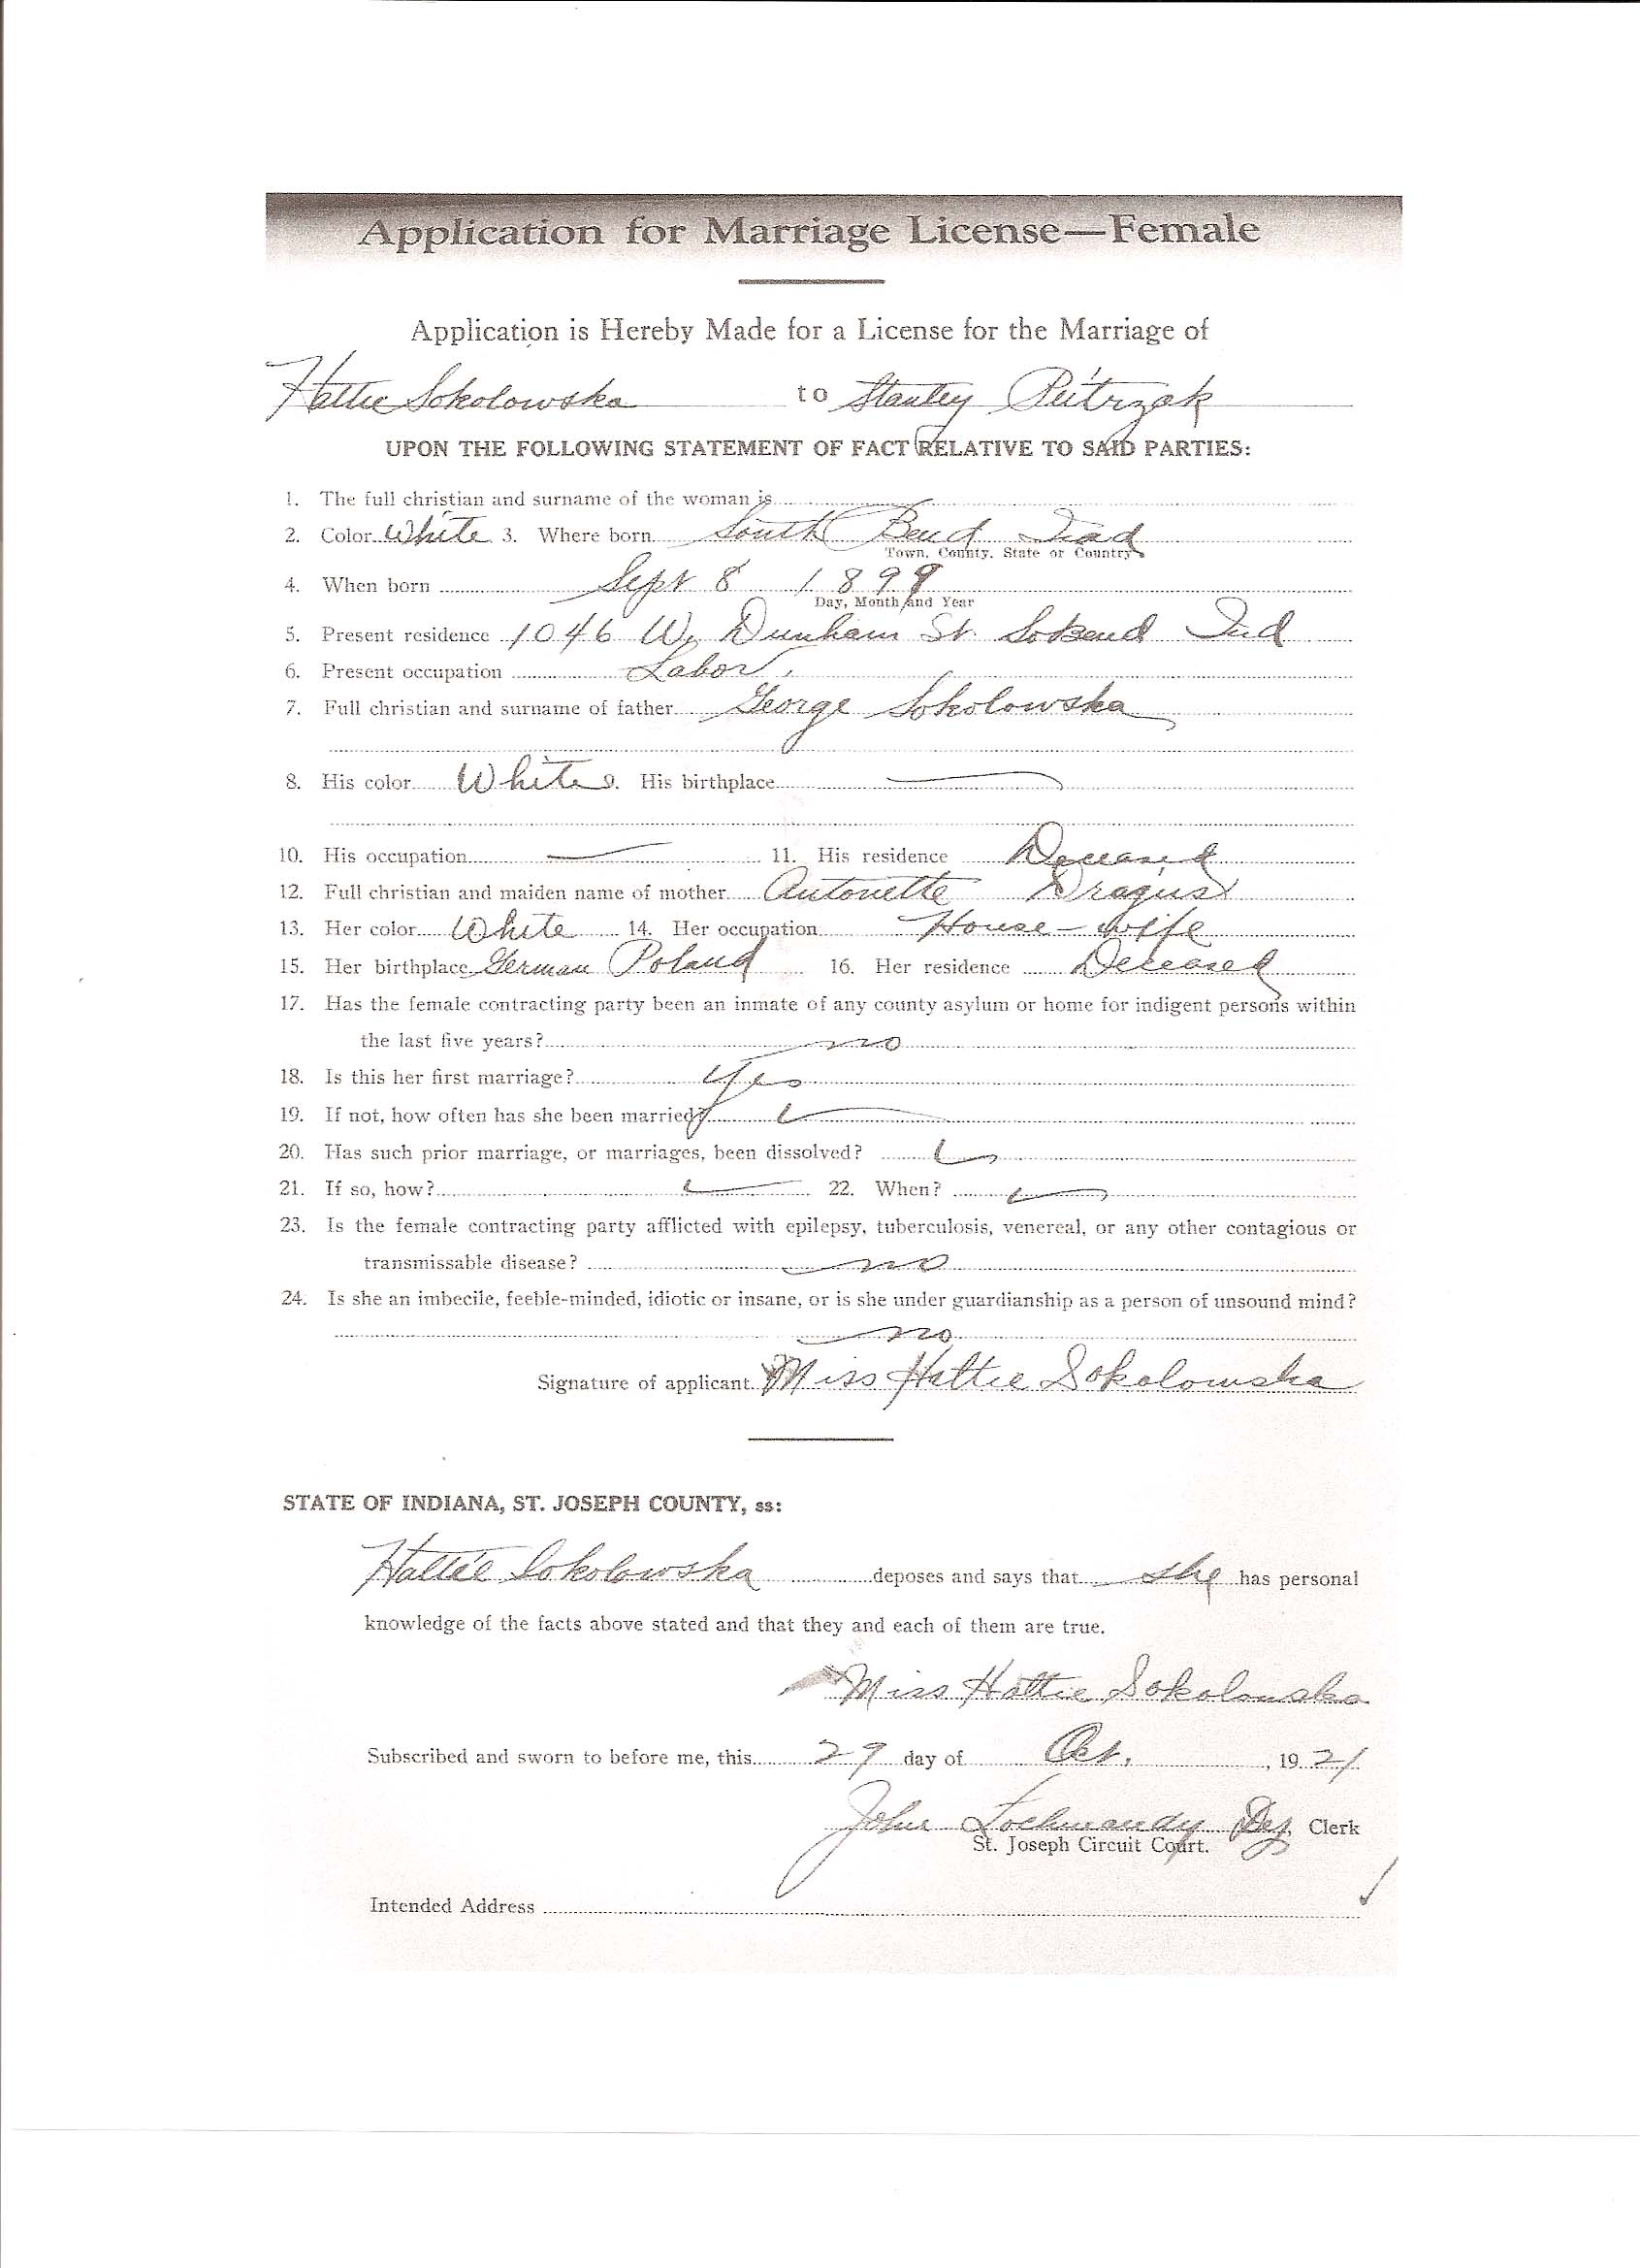 Application for Marriage License—Female
Application is Hereby Made for a License for the Marriage of
Hattie Sokolowska to Stanley Peitrzak
UPON THE FOLLOWING STATEMENT OF FACT RELATIVE TO SAID PARTIES:
1. The full christian and surname of the woman is
2. Color White 3. Where born South Bend Ind
Town, County, State or Country
4. When born Sept 8 1899
Day, Month and Year
5. Present residence 1046 W. Dunham St. So Bend Ind
6. Present occupation Labor
7. Full christian and surname of father George Sokolowska
8. His color White 9. His birthplace
10. His occupation 11. His residence Deceased
12. Full christian and maiden name of mother Antonette Dragus
13. Her color White 14. Her occupation House-wife
15. Her birthplace German Poland 16. Her residence Deceased
17. Has the female contracting party been an inmate of any county asylum or home for indigent persons within
the last five years? no
18. Is this her first marriage? Yes
19. If not, how often has she been married?
20. Has such prior marriage, or marriages, been dissolved?
21. If so, how? 22. When?
23. Is the female contracting party afflicted with epilepsy, tuberculosis, venereal, or any other contagious or
transmissable disease? no
24. Is she an imbecile, feeble-minded, idiotic or insane, or is she under guardianship as a person of unsound mind?
no
Signature of applicant Miss Hattie Sokolowska
STATE OF INDIANA, ST. JOSEPH COUNTY, ss:
Hattie Sokolowska deposes and says that she has personal
knowledge of the facts above stated and that they and each of them are true.
Miss Hattie Sokolowska
Subscribed and sworn to before me, this 29 day of Oct. , 1921
John Lochmandy Dep Clerk
St. Joseph Circuit Court.
Intended Address